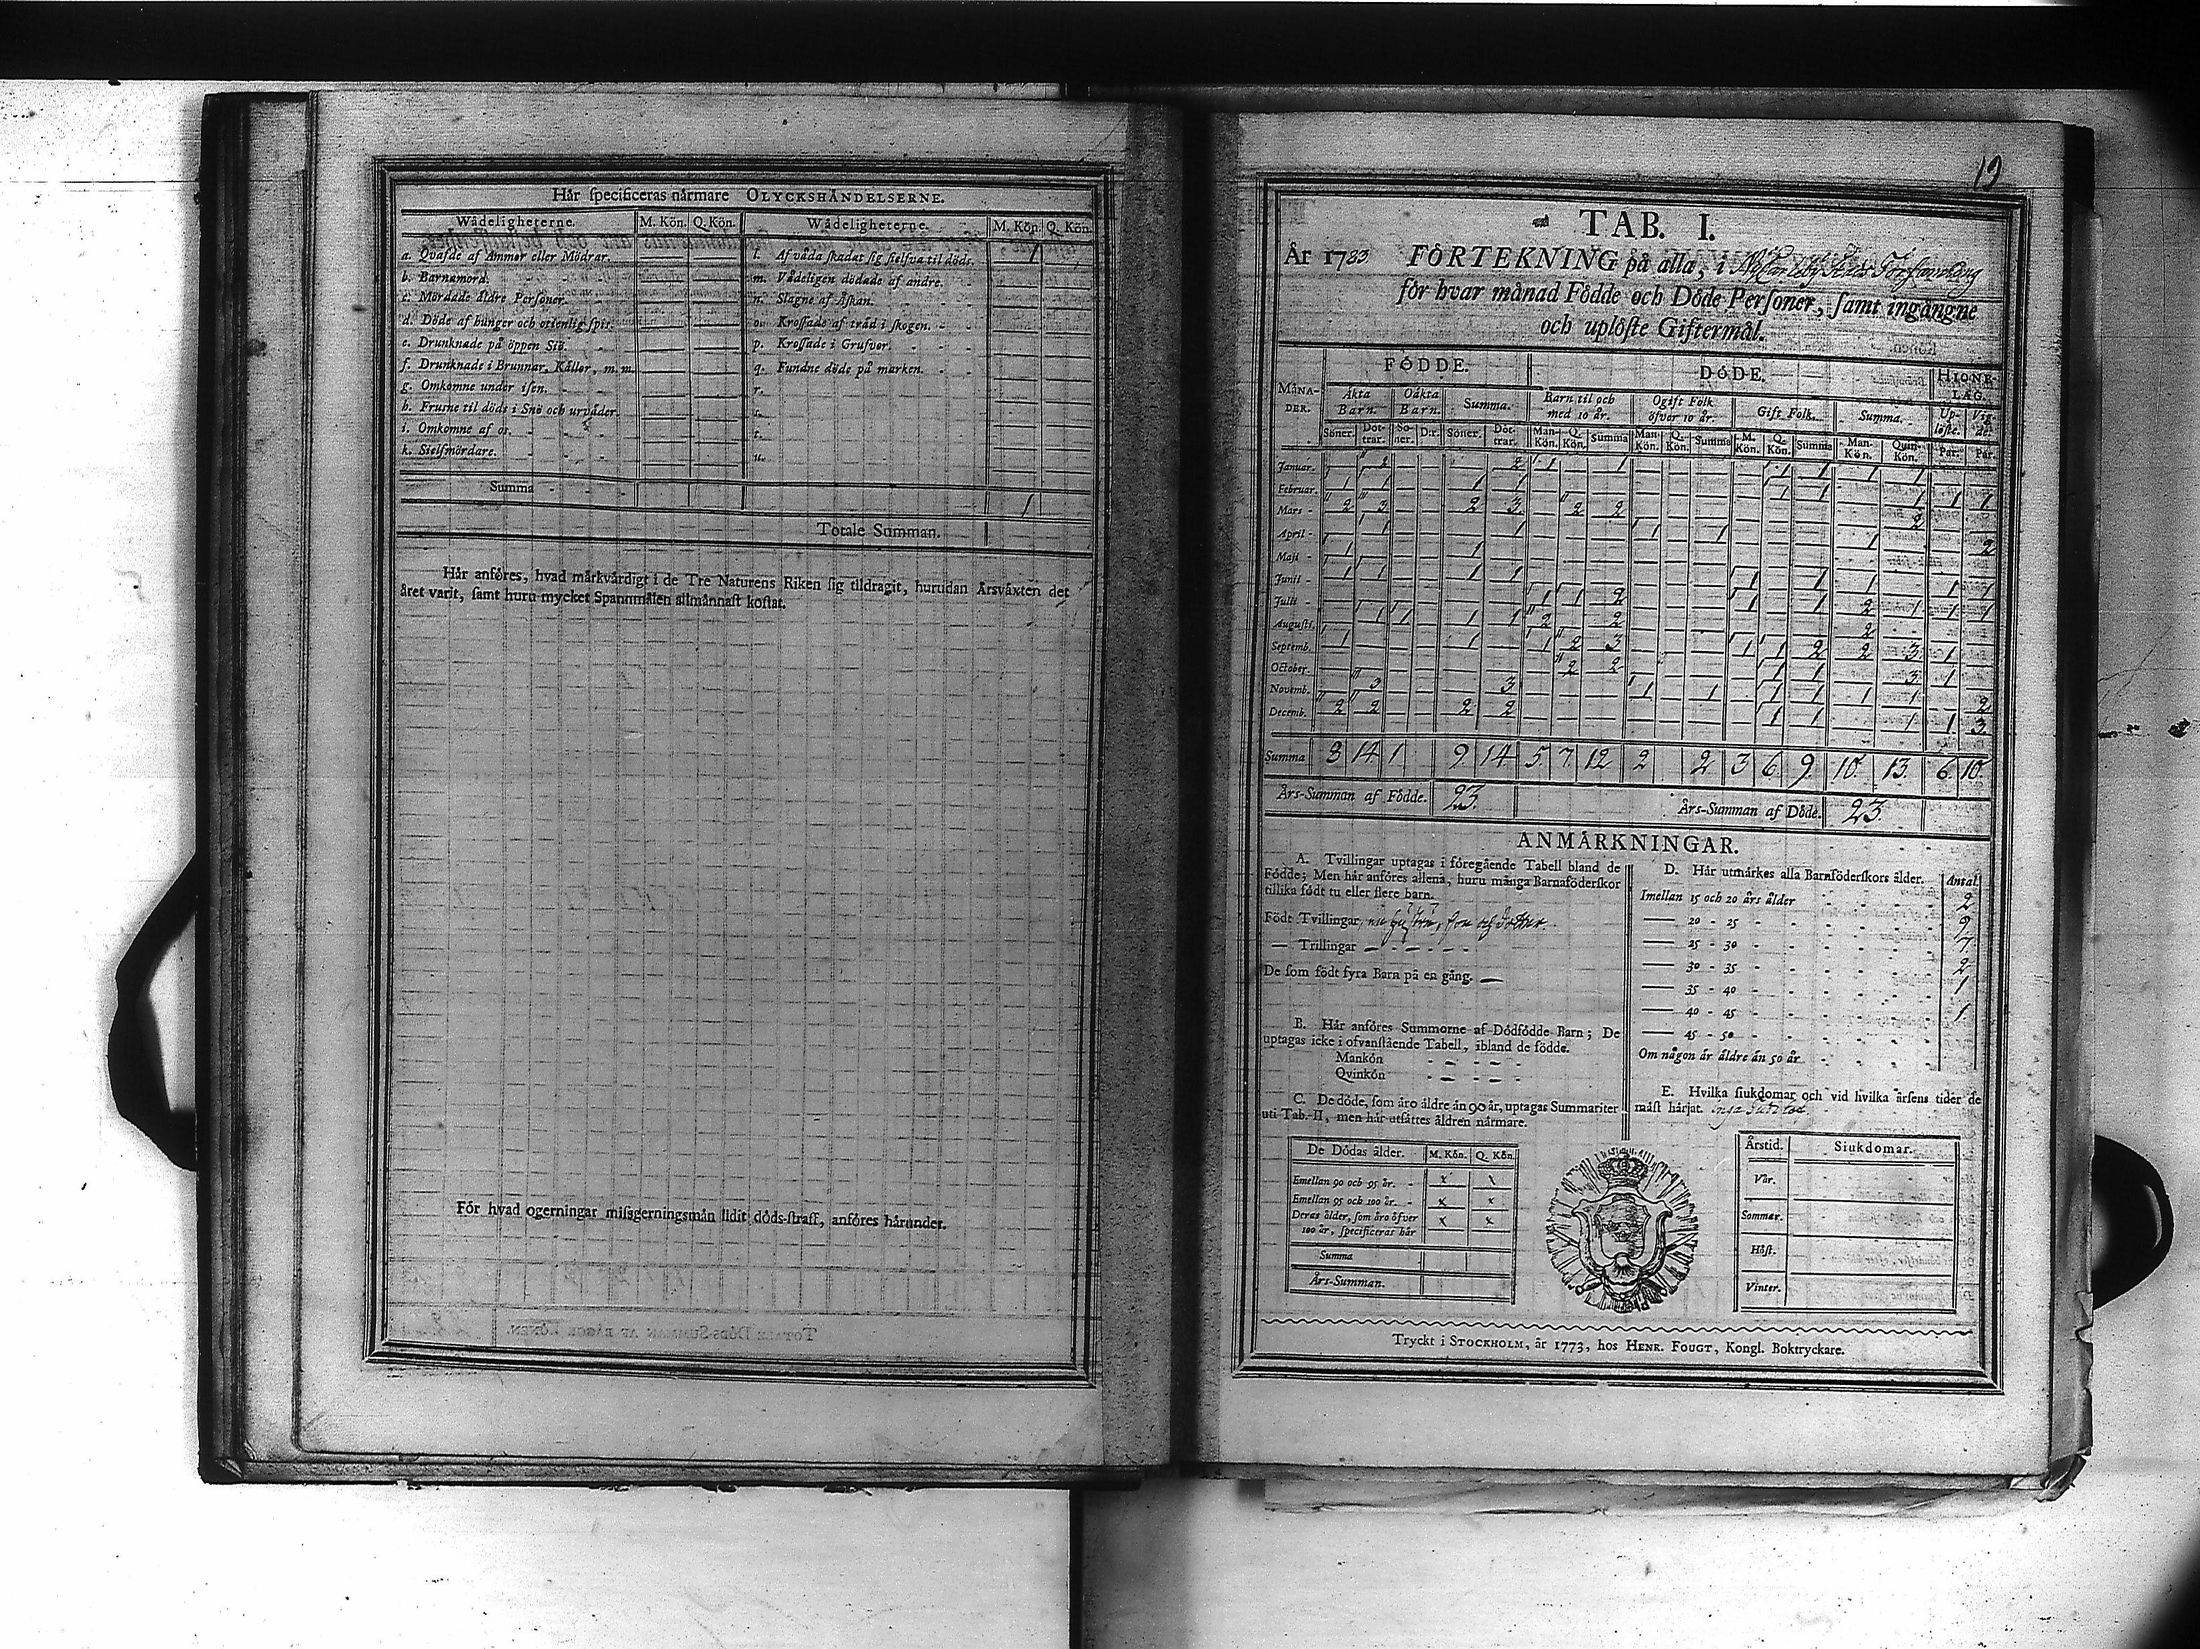 Här ſpecificeras närmare OLYCKSHÄNDELSERNE.
Wådeligheterne. M. Kön. Q. Kön. Wådeligheterne. M. Kön. Q. Kön.
a. Qväfde af Ammor eller Mödrar. l. Af våda ſkadat ſig ſielfva til döds. 1
b. Barnamord. m. Vådeligen dödade af andre.
c. Mördade äldre Perſoner. n. Slagne af Åſkan.
d. Döde af hunger och otienlig ſpis. o. Kroſſade af träd i ſkogen.
e. Drunknade på öppen Siö. p. Kroſſade i Grufvor.
f. Drunknade i Brunnar, Källor, m. m. q. Fundne döde på marken.
g. Omkomne under iſen. r.
h. Fruſne til döds i Snö och urväder. s.
i. Omkomne af os. t.
k. Sielfmördare. u.
Summa 1
Totale Summan.
Här anföres, hvad märkvärdigt i de Tre Naturens Riken ſig tildragit, hurudan Årsväxten det
året varit, ſamt huru mycket Spannmålen allmännaſt koſtat.
För hvad ogerningar miſsgerningsmän lidit döds-ſtraff, anföres härunder.
TOTALE DÖDS-SUMMAN AF BÄGGE KÖNEN.
19
TAB. I.
År 1783 FÖRTEKNING på alla, i
för hvar månad Födde och Döde Perſoner, ſamt ingångne
och uplöſte Giftermål.
FÖDDE. DÖDE. HIONE-
LAG.
MÅNA-
DER. Äkta
Barn. Oäkta
Barn. Summa. Barn til och
med 10 år. Ogift Folk
öfver 10 år. Gift Folk. Summa. Up-
löſte. Vig-
de.
Söner. Döt-
trar. Sö-
ner. D:r. Söner. Döt-
trar. Man-
Kön. Q.
Kön. Summa Man
Kön. Q.
Kön. Summa M.
Kön. Q.
Kön. Summa Man-
Kön. Quin-
Kön. Par. Par.
Januar. 2 2 1 1 1 1 1 1
Februar. 1 1 1 1 1 1 1 1 1
Mars 2 3 2 3 2 2 2
April 1 1 1 1 1 2
Maji 1 1
Junii 1 1 1 1 1 1 1 1 1
Julii 1 1 2 1 1 2 1 1 1
Auguſti. 1 1 1 1 2 2 2
Septemb. 1 1 1 2 3 1 1 2 2 3 1
October. 2 2 1 1 3 1
Novemb. 3 3 1 1 1 1 1 1 2
Decemb. 2 2 2 2 1 1 1 1 3
Summa 8 14 1 9 14 5 7 12 2 2 3 6 9 10 13 6 10
Års-Summan af Födde. 23. Års-Summan af Döde. 23
ANMÄRKNINGAR.
A. Tvillingar uptagas i föregående Tabell bland de
Födde; Men här anföres allena, huru många Barnaföderſkor
tillika födt tu eller flere barn.
Födt Tvillingar, en huſtru, ſon och dotter.
— Trillingar —
De ſom födt fyra Barn på en gång. —
B. Här anföres Summorne af Dödfödde Barn; De
uptagas icke i ofvanſtående Tabell, ibland de födde.
Mankön
Qvinkön
C. De döde, ſom äro äldre än 90 år, uptagas Summariter
uti Tab. II, men här utſättes åldren närmare.
De Dödas ålder. M. Kön. Q. Kön.
Emellan 90 och 95 år. x x
Emellan 95 och 100 år. x x
Deras ålder, ſom äro öfver
100 år, ſpecificeras här x x
Summa
Års-Summan.
D. Här utmärkes alla Barnföderſkors ålder. Antal.
Imellan 15 och 20 års ålder 2
— 20 - 25 9
— 25 - 30 7
— 30 - 35 2
— 35 - 40 1
— 40 - 45 1
— 45 - 50
Om någon är äldre än 50 år
E. Hvilka ſiukdomar och vid hvilka årſens tider de
mäſt härjat.
Årstid. Siukdomar.
Vår.
Sommar.
Höſt.
Vinter.
Tryckt i STOCKHOLM, år 1773, hos HENR. FOUGT, Kongl. Boktryckare.